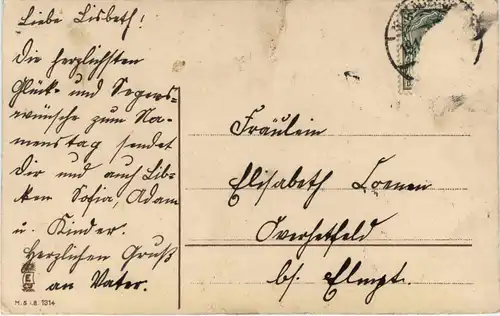 Liebe Lisbeth!
Die herzlichsten
Glück- und Segens-
wünsche zum Na-
menstag sendet
Dir und auch Lib-
ken Sofia, Adam
u. Kinder.
Herzlichen Gruß
an Vater.
M. S. i. B. 1314
Fräulein
Elisabeth Coenen
Overhetfeld
bs. Elmpt.